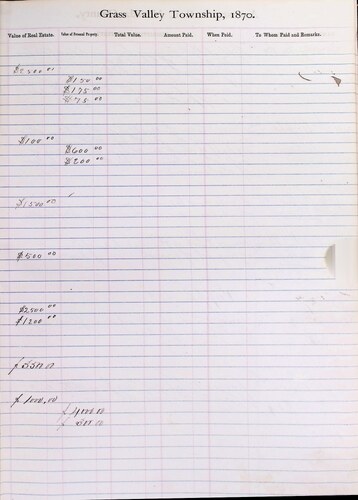 Grass Valley Township, 1870.
Value of Real Estate. Value of Personal Property. Total Value. Amount Paid. When Paid. To Whom Paid and Remarks.
$150 00
$175 00
$75 00
$100 00
$600 00
$200 00
$1500 00
$500 00
$2,500 00
$1200 00
$1000.00